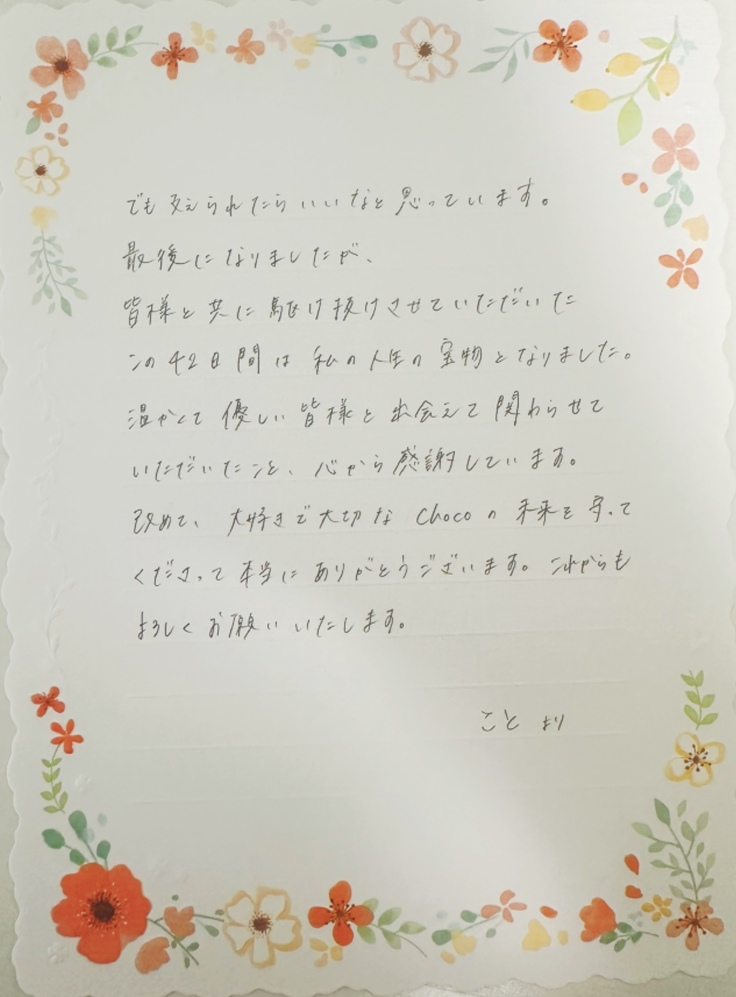 でも支えられたらいいなと思っています。
最後になりましたが、
皆様と共に駆け抜けさせていただいた
この42日間は私の人生の宝物となりました。
温かくて優しい皆様と出会えて関わらせて
いただいたこと、心から感謝しています。
改めて、大好きで大切なchocoの未来を守って
くださって本当にありがとうございます。これからも
よろしくお願いいたします。
ことより